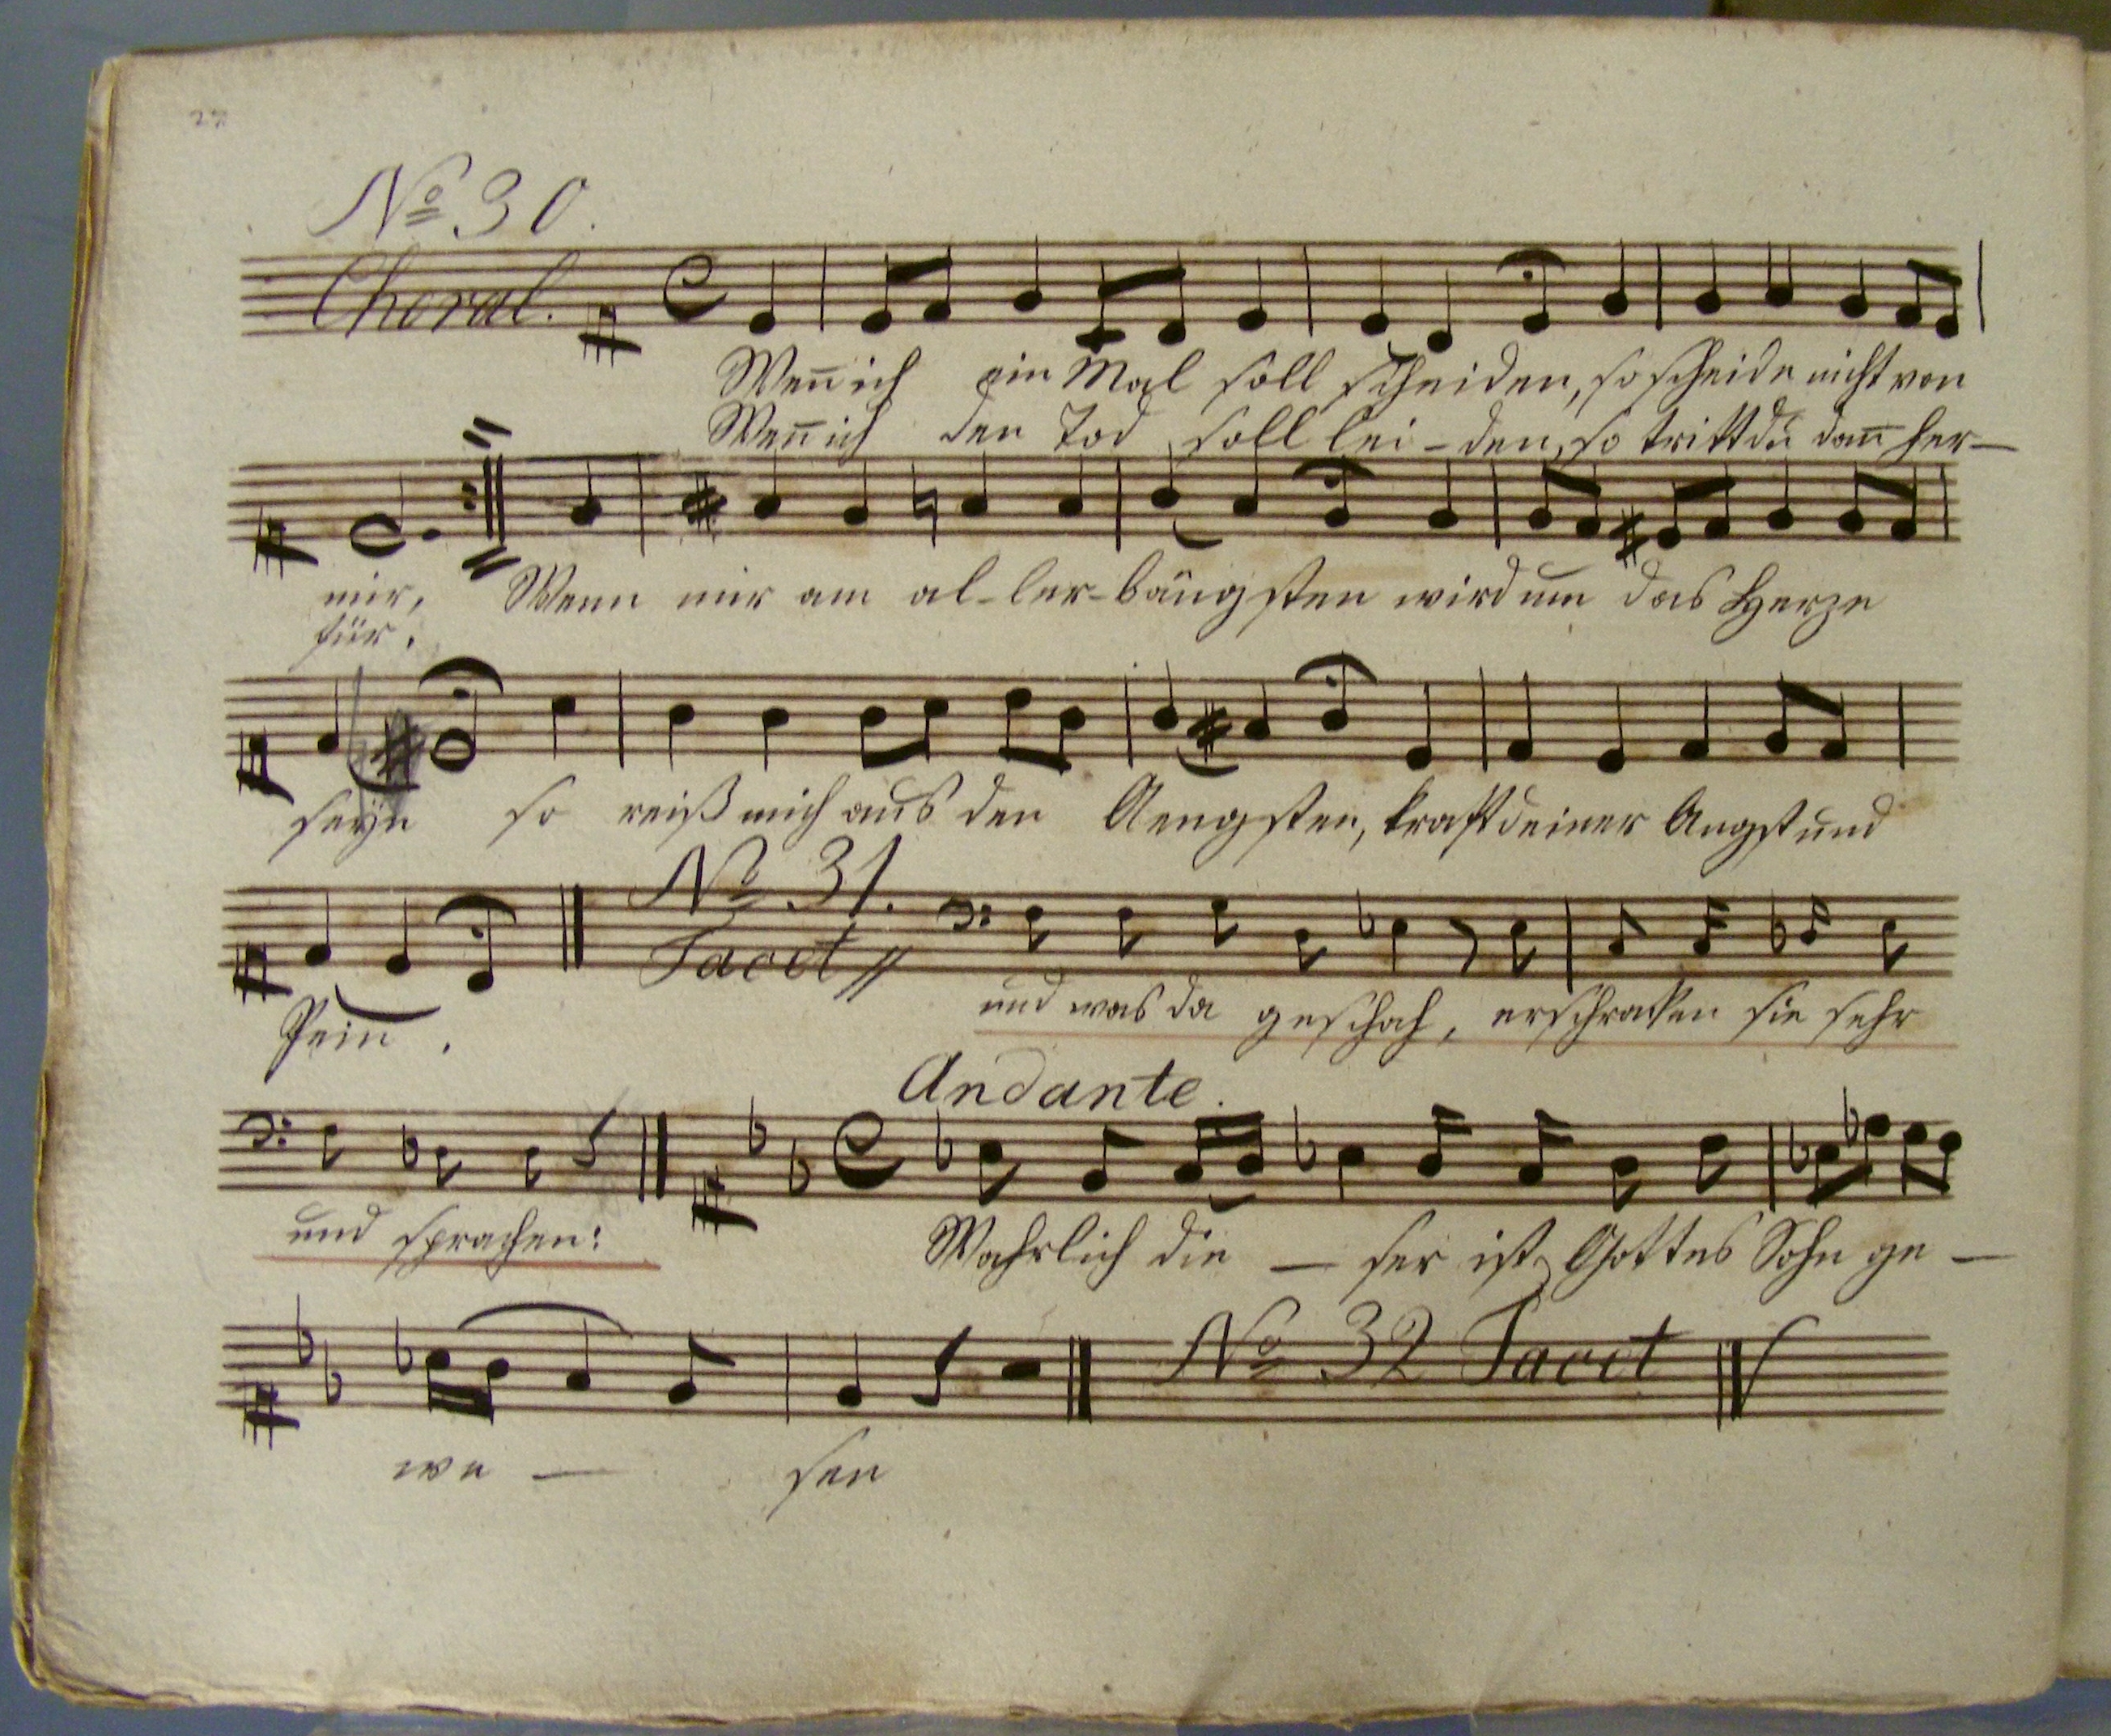 27
No 30.
Choral.
Weñ ich ein Mal soll scheiden, so scheide nicht von
Weñ ich den Tod soll lei-den, so tritt du dañ her-
mir, Wenn mir am al-ler-bängsten wird um das Herze
für.
seyn so reiß mich aus den Aengsten, kraft deiner Angst und
No 31.
Tacet //
Pein. und was da geschah, erschraken sie sehr
Andante.
und sprachen: Wahrlich die - ser ist Gottes Sohn ge -
No 32 Tacet
we - sen